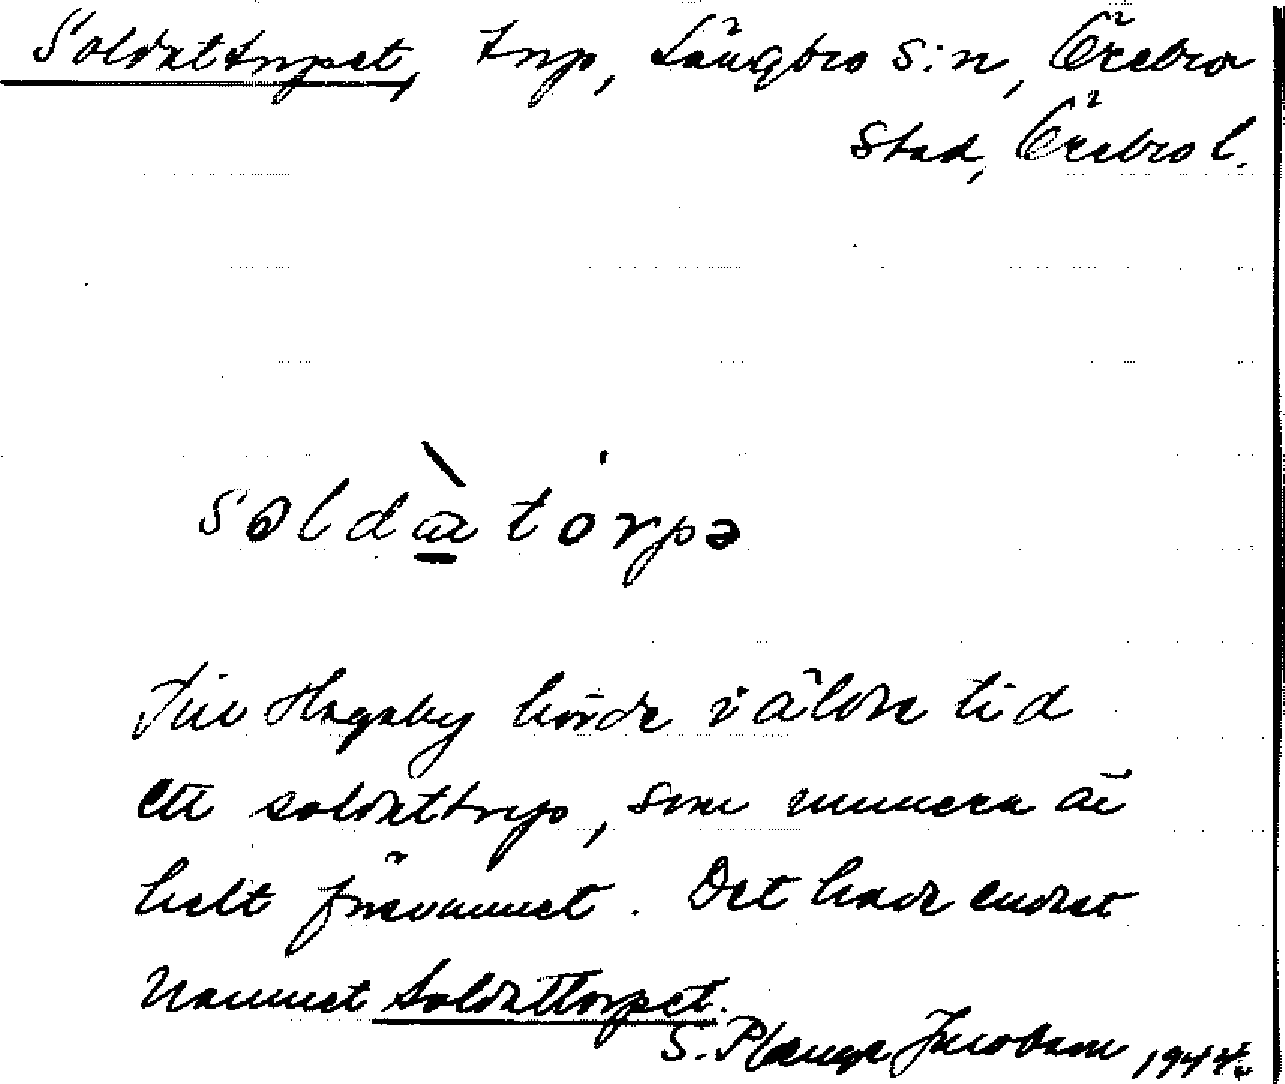 Soldattorpet, torp, Längbro s:n, Örebro
stad, Örebro l.
soldàtórpə
Till Hagaby hörde i äldre tid
ett soldattorp, som numera är
helt försvunnet. Det hade endast
namnet Soldattorpet.
S. Plauge Jacobson 1944